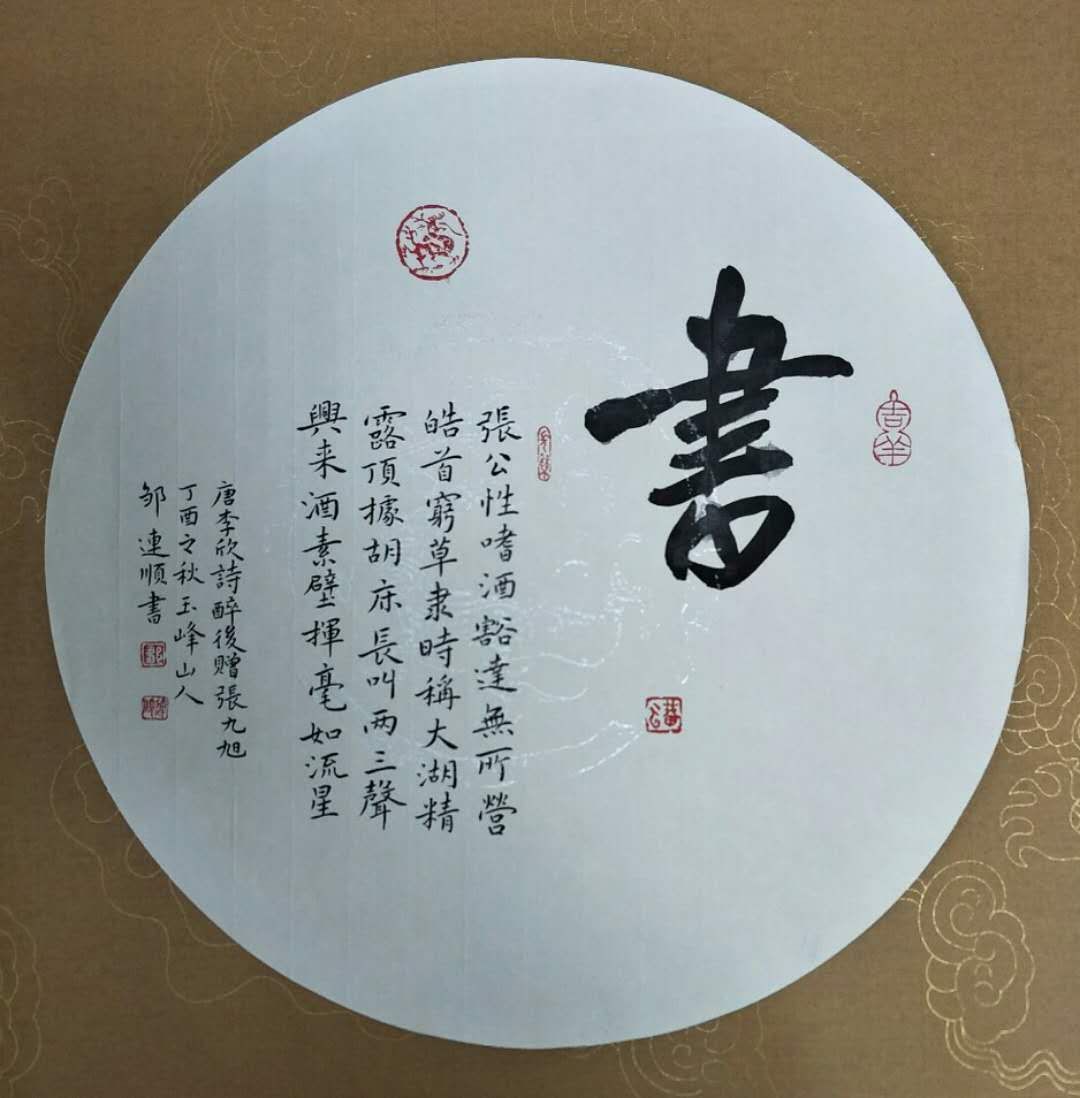 書
張公性嗜酒豁達無所營
皓首窮草隶時稱大湖精
露頂據胡床長叫两三聲
興来酒素壁揮毫如流星
唐李欣詩醉後贈張九旭
丁酉之秋玉峰山人
邹連順書
吉羊